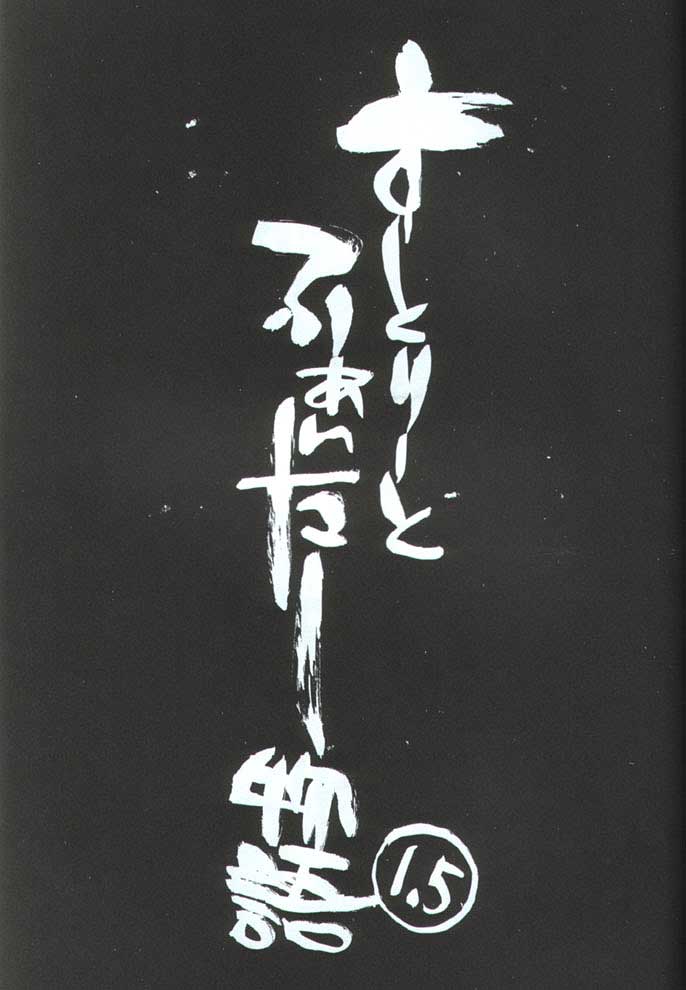 すーとりーと
ふぁいたー物語
1.5